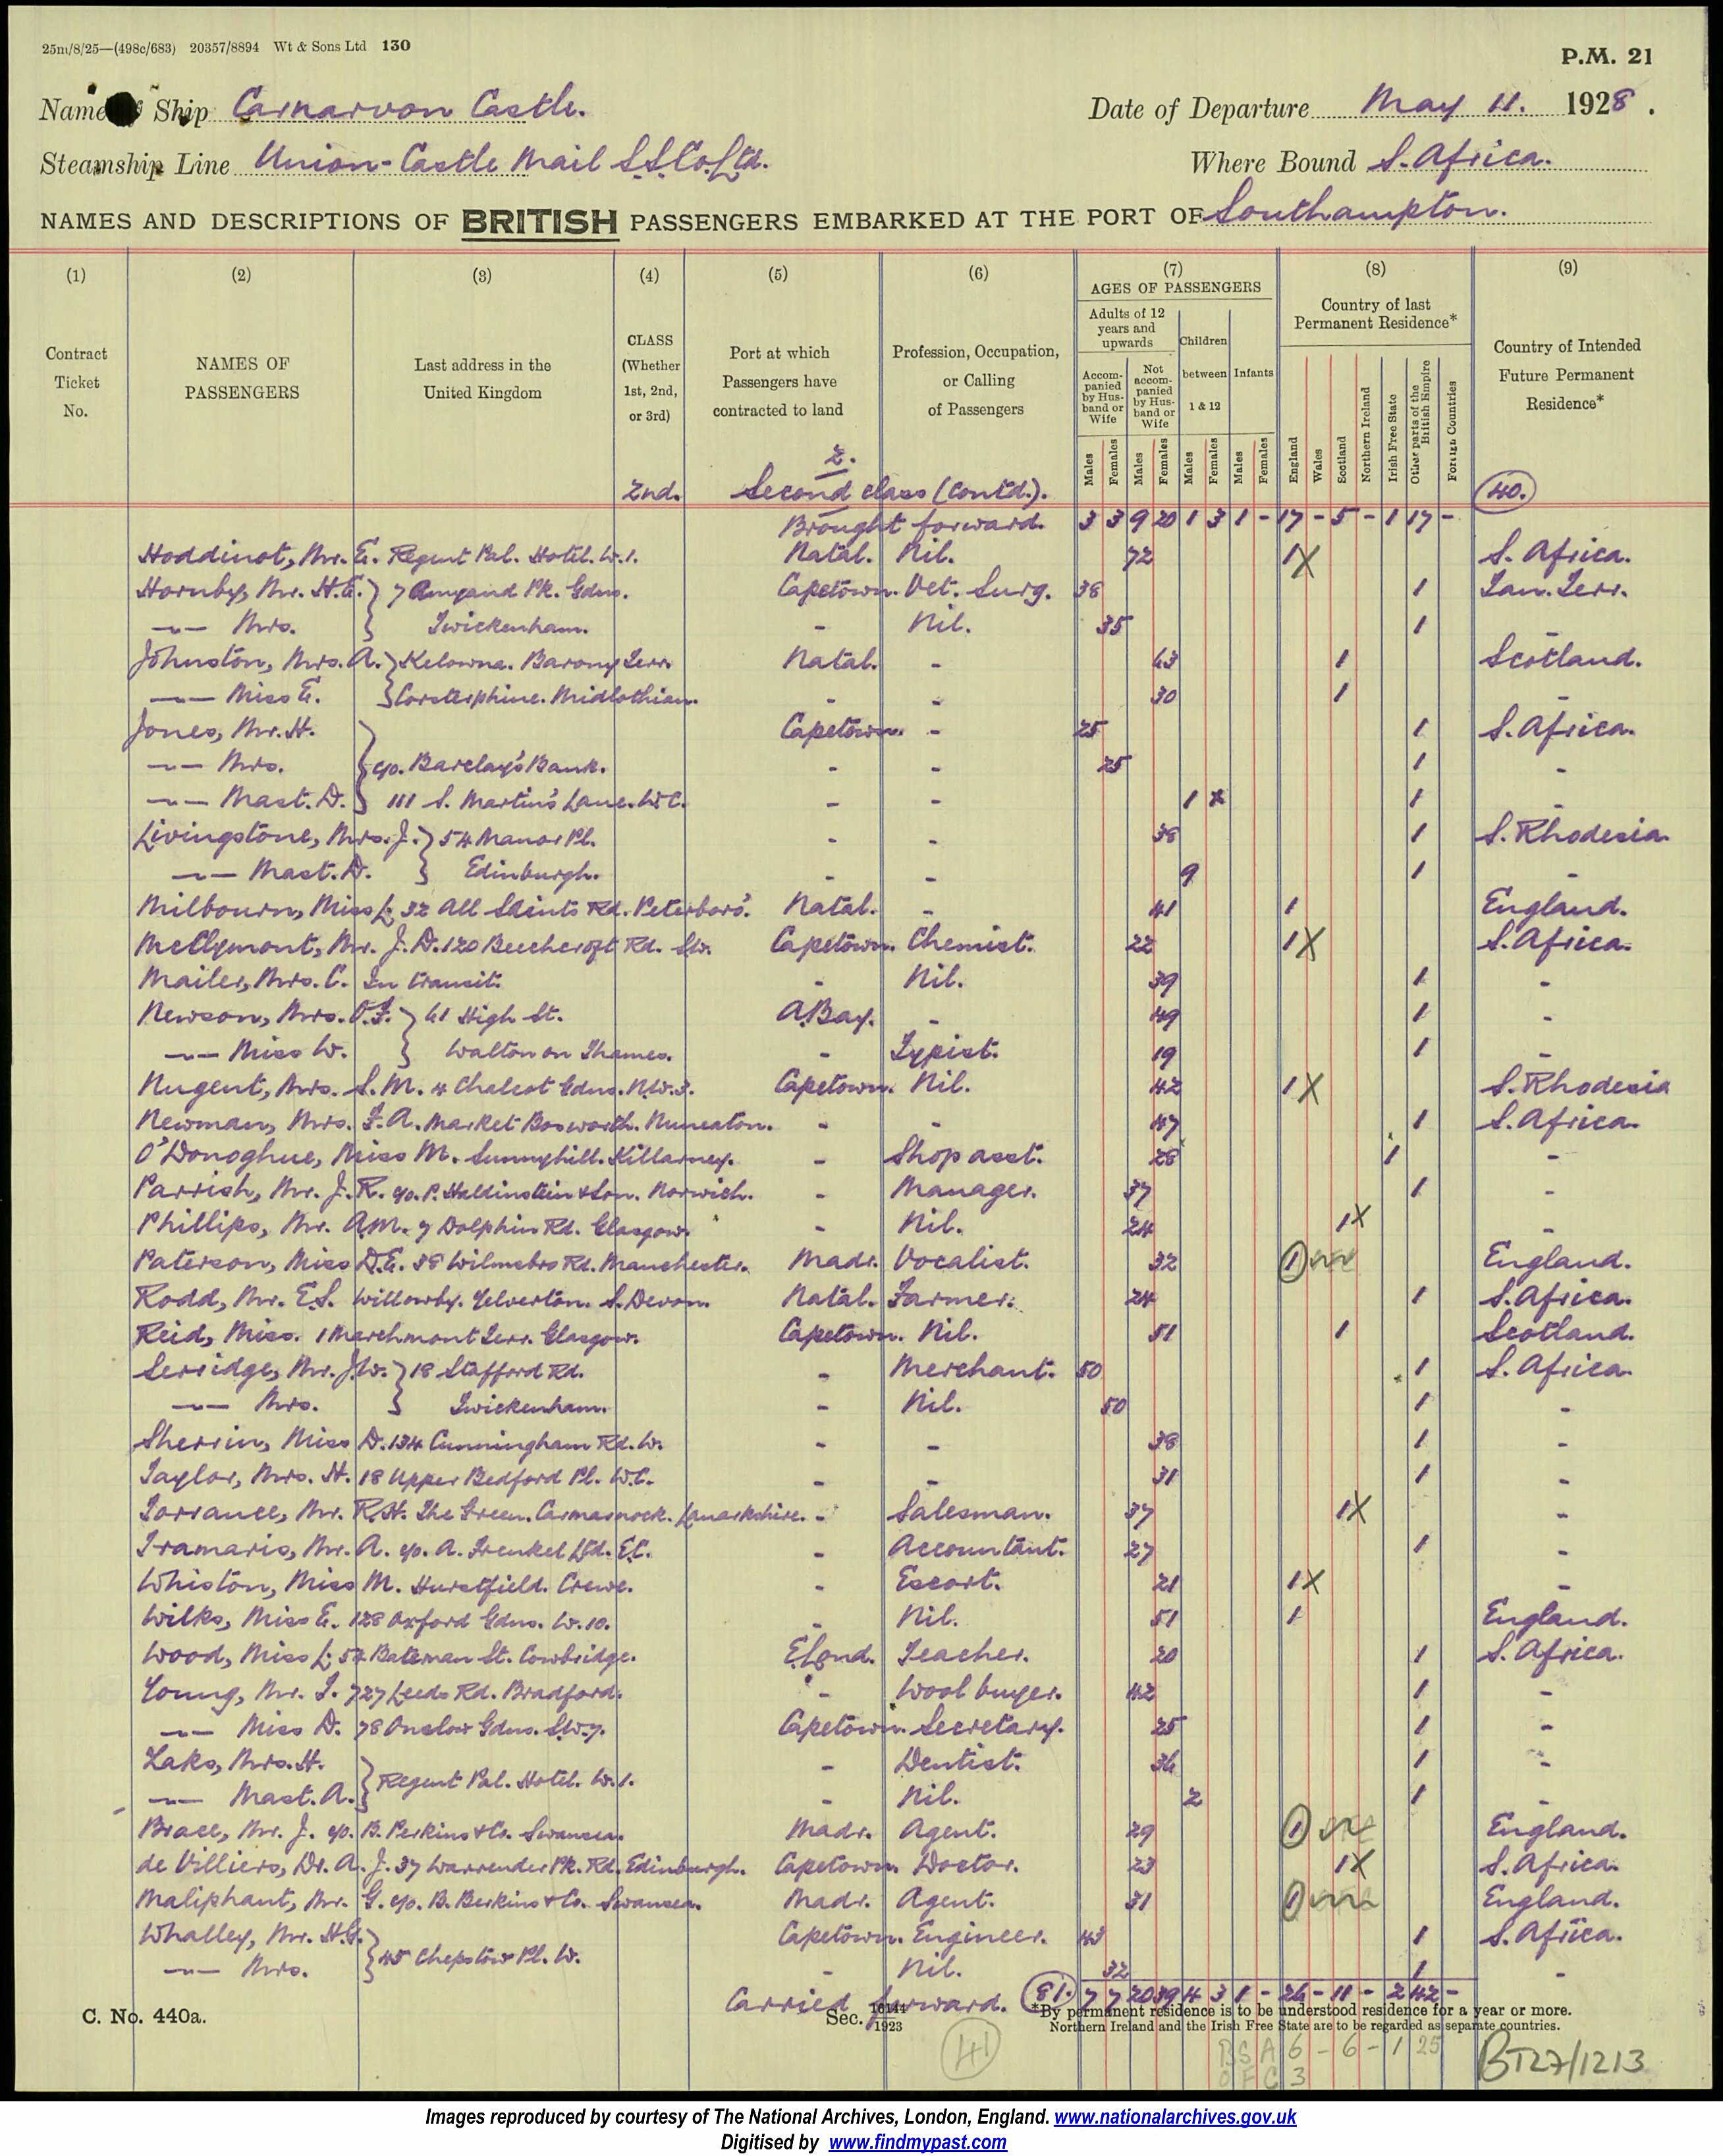 25m/8/25—(498c/683) 20357/8894 Wt & Sons Ltd 130
P.M. 21
Name of Ship Carnarvon Castle.
Date of Departure May 11. 1928.
Steamship Line Union-Castle Mail S.S.Co.Ltd.
Where Bound S. Africa.
NAMES AND DESCRIPTIONS OF BRITISH PASSENGERS EMBARKED AT THE PORT OF Southampton.
(1) (2) (3) (4) (5) (6) (7) (8) (9)
Contract Ticket No.
NAMES OF PASSENGERS
Last address in the United Kingdom
CLASS (Whether 1st, 2nd, or 3rd)
Port at which Passengers have contracted to land
Profession, Occupation, or Calling of Passengers
AGES OF PASSENGERS
Adults of 12 years and upwards
Accompanied by Husband or Wife
Not accompanied by Husband or Wife
Children between 1 & 12
Infants
Males Females Males Females Males Females Males Females
Country of last Permanent Residence*
England Wales Scotland Northern Ireland Irish Free State Other parts of the British Empire Foreign Countries
Country of Intended Future Permanent Residence*
2.
2nd. Second class (Contd.). 40.
Brought forward. 3 3 9 20 1 3 1 - 17 - 5 - 1 17 -
Hoddinot, Mr. E. Regent Pal. Hotel. W.1. Natal. Nil. 72 1 X S. Africa.
Hornby, Mr. H.E. 7 Amyand Pk. Gdns. Capetown. Vet. Surg. 38 1 Tan. Terr.
-"- Mrs. Twickenham. - Nil. 35 1 -
Johnston, Mrs. A. Kelowna. Barony Terr. Natal. - 63 1 Scotland.
-"- Miss E. Corstorphine. Midlothian. - - 30 1 -
Jones, Mr. H. Capetown. - 25 1 S. Africa.
-"- Mrs. c/o. Barclay's Bank. - - 25 1 -
-"- Mast. D. 111 S. Martin's Lane. W.C. - - 1 1 -
Livingstone, Mrs. J. 54 Manor Pl. - - 38 1 S. Rhodesia
-"- Mast. D. Edinburgh. - - 9 1 -
Milbourn, Miss L. 32 All Saints Rd. Peterboro'. Natal. - 41 1 England.
McClymont, Mr. J.D. 120 Beechcroft Rd. S.W. Capetown. Chemist. 22 1 X S. Africa.
Mailer, Mrs. C. In transit. - Nil. 39 1 -
Newson, Mrs. O.F. 61 High St. A.Bay. - 49 1 -
-"- Miss W. Walton on Thames. - Typist. 19 1 -
Nugent, Mrs. S.M. 4 Chalcot Gdns. N.W.3. Capetown. Nil. 42 1 X S. Rhodesia
Newman, Mrs. F.A. Market Bosworth. Nuneaton. - - 47 1 S. Africa.
O'Donoghue, Miss M. Sunnyhill. Killarney. - Shop asst. 28 1 -
Parrish, Mr. J.R. c/o. P. Haldinstein & Son. Norwich. - Manager. 37 1 -
Phillips, Mr. A.M. 7 Dolphin Rd. Glasgow. - Nil. 24 1 X -
Paterson, Miss D.E. 38 Wilmsbro Rd. Manchester. Madr. Vocalist. 32 1 England.
Rodd, Mr. E.S. Willowby. Yelverton. S. Devon. Natal. Farmer. 24 1 S. Africa.
Reid, Miss. 1 Marchmont Terr. Glasgow. Capetown. Nil. 51 1 Scotland.
Serridge, Mr. J.W. 18 Stafford Rd. - Merchant. 50 1 S. Africa.
-"- Mrs. Twickenham. - Nil. 50 1 -
Sherrin, Miss D. 134 Cunningham Rd. W. - - 38 1 -
Taylor, Mrs. H. 18 Upper Bedford Pl. W.C. - - 31 1 -
Torrance, Mr. R.H. The Green. Carmannock. Lanarkshire. - Salesman. 37 1 X -
Tramaris, Mr. A. c/o. A. Frenkel Ltd. E.C. - Accountant. 27 1 -
Whiston, Miss M. Hurstfield. Crewe. - Escort. 21 1 X -
Wilks, Miss E. 128 Oxford Gdns. W.10. - Nil. 51 1 England.
Wood, Miss L. 52 Bateman St. Cowbridge. E.Lond. Teacher. 20 1 S. Africa.
Young, Mr. J. 727 Leeds Rd. Bradford. - Wool buyer. 42 1 -
-"- Miss D. 78 Onslow Gdns. S.W.7. Capetown. Secretary. 25 1 -
Laks, Mrs. H. - Dentist. 36 1 -
-"- Mast. A. Regent Pal. Hotel. W.1. - Nil. 2 1 -
Brace, Mr. J. c/o. B. Perkins & Co. Swansea. Madr. Agent. 29 1 England.
de Villiers, Dr. A.J. 37 Warrender Pk. Rd. Edinburgh. Capetown. Doctor. 23 1 X S. Africa.
Maliphant, Mr. G. c/o. B. Berkins & Co. Swansea. Madr. Agent. 31 1 England.
Whalley, Mr. H.G. Capetown. Engineer. 43 1 S. Africa.
-"- Mrs. 45 Chepstow Pl. W. - Nil. 32 1 -
Carried forward. 81. 7 7 20 39 4 3 1 - 26 - 11 - 2 42 -
C. No. 440a.
Sec. 16144/1923
*By permanent residence is to be understood residence for a year or more.
Northern Ireland and the Irish Free State are to be regarded as separate countries.
41
B S A 6 - 6 - 1 25
O F C 3
BT27/1213
Images reproduced by courtesy of The National Archives, London, England. www.nationalarchives.gov.uk
Digitised by www.findmypast.com